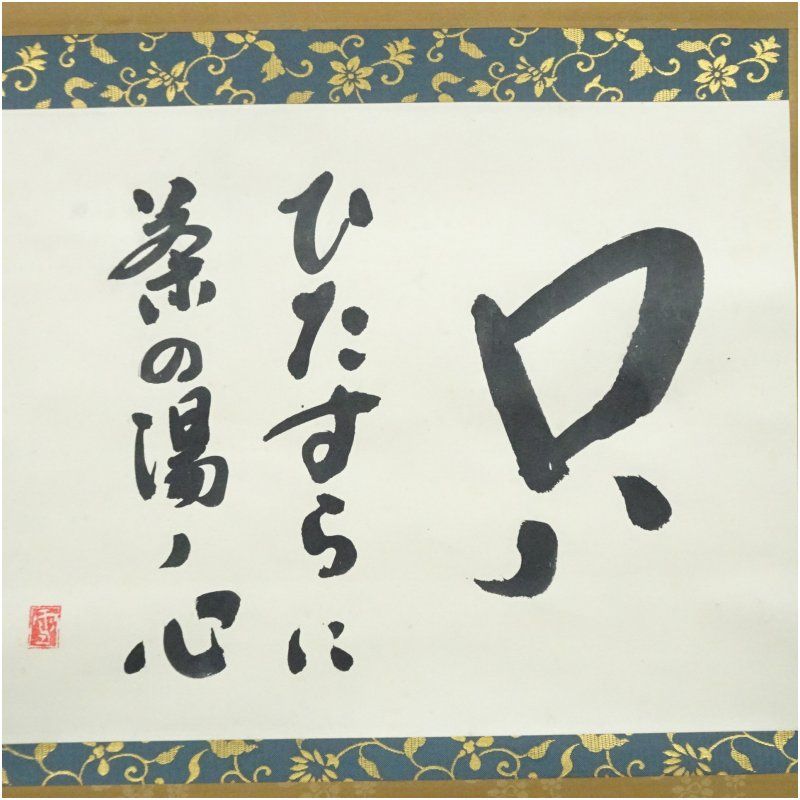 只
ひたすらに
茶の湯ノ心